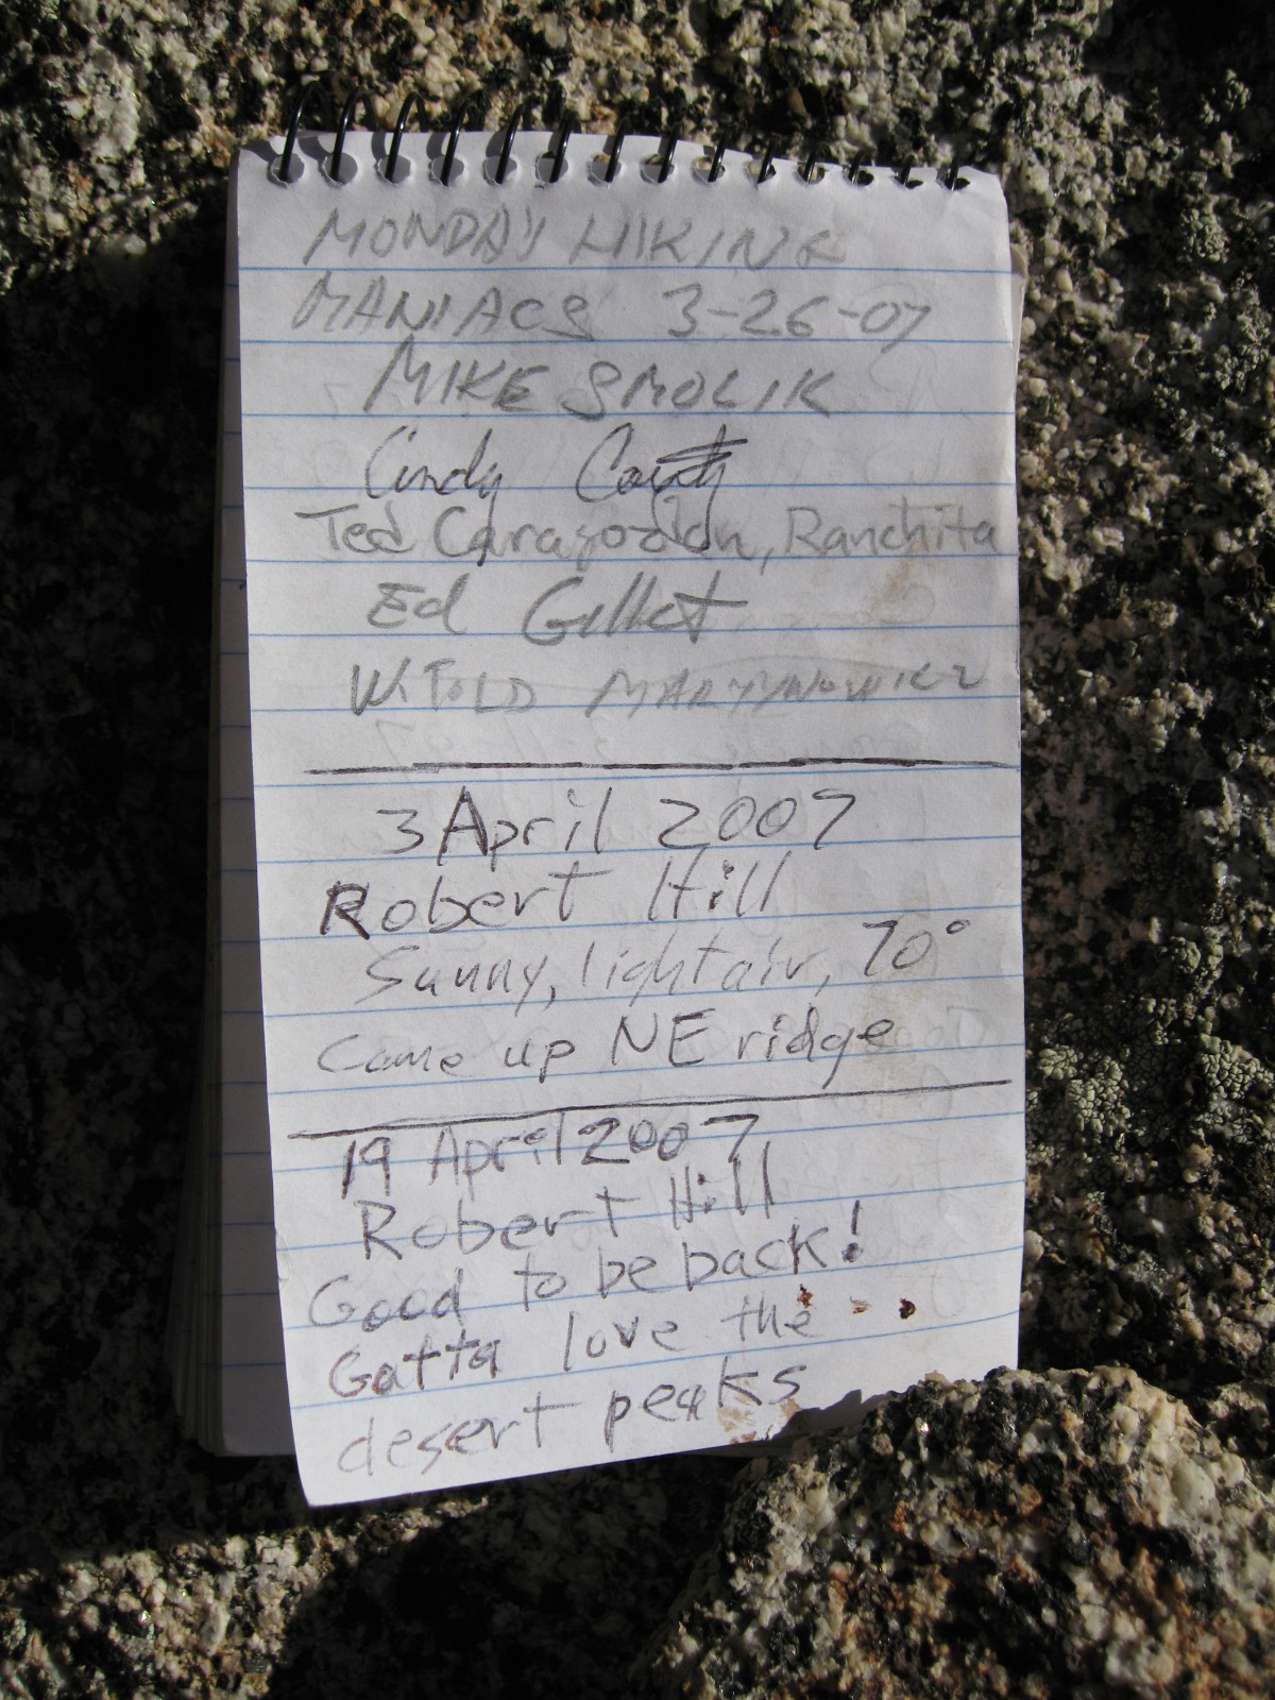 MONDAY HIKING
MANIACS 3-26-07
MIKE SMOLIK
Cindy
Ted Caragozian, Ranchita
Ed Gillet
WITOLD MARTYNOWICZ
3 April 2007
Robert Hill
Sunny, light air, 70°
Came up NE ridge
19 April 2007
Robert Hill
Good to be back!
Gatta love the
desert peaks